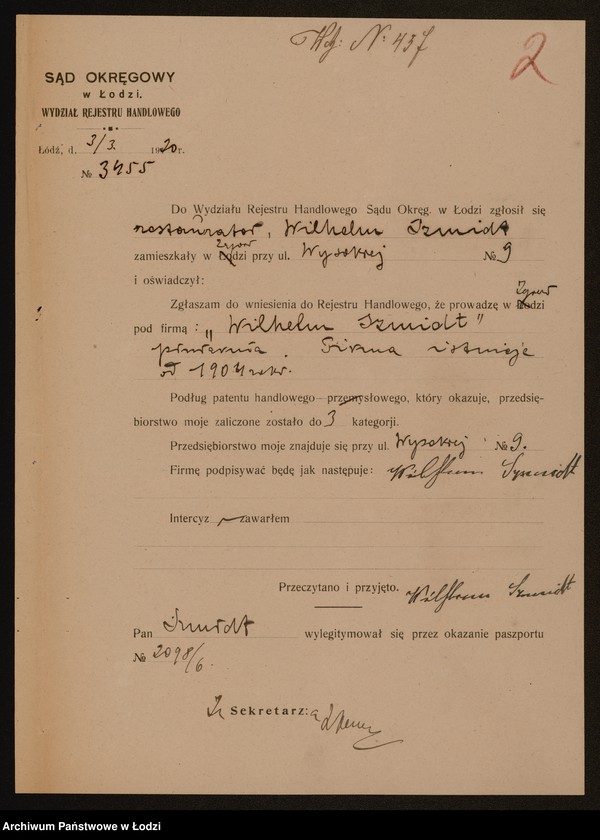 № 437
2
SĄD OKRĘGOWY
w Łodzi.
WYDZIAŁ REJESTRU HANDLOWEGO
Łódź, d. 3/3. 1920 r.
№ 3455
Do Wydziału Rejestru Handlowego Sądu Okręg. w Łodzi zgłosił się
restaurator, Wilhelm Szmidt
zamieszkały w Łodzi przy ul. Wysokiej № 9
i oświadczył:
Zgłaszam do wniesienia do Rejestru Handlowego, że prowadzę w Łodzi
pod firmą: „Wilhelm Szmidt"
piwiarnia. Firma istnieje
od 1904 roku.
Podług patentu handlowego—przemysłowego, który okazuje, przedsię-
biorstwo moje zaliczone zostało do 3 kategorji.
Przedsiębiorstwo moje znajduje się przy ul. Wysokiej № 9.
Firmę podpisywać będę jak następuje: Wilhelm Szmidt
Intercyz zawarłem
Przeczytano i przyjęto. Wilhelm Szmidt
Pan Szmidt wylegitymował się przez okazanie paszportu
№ 2098/6.
Sekretarz:
Archiwum Państwowe w Łodzi